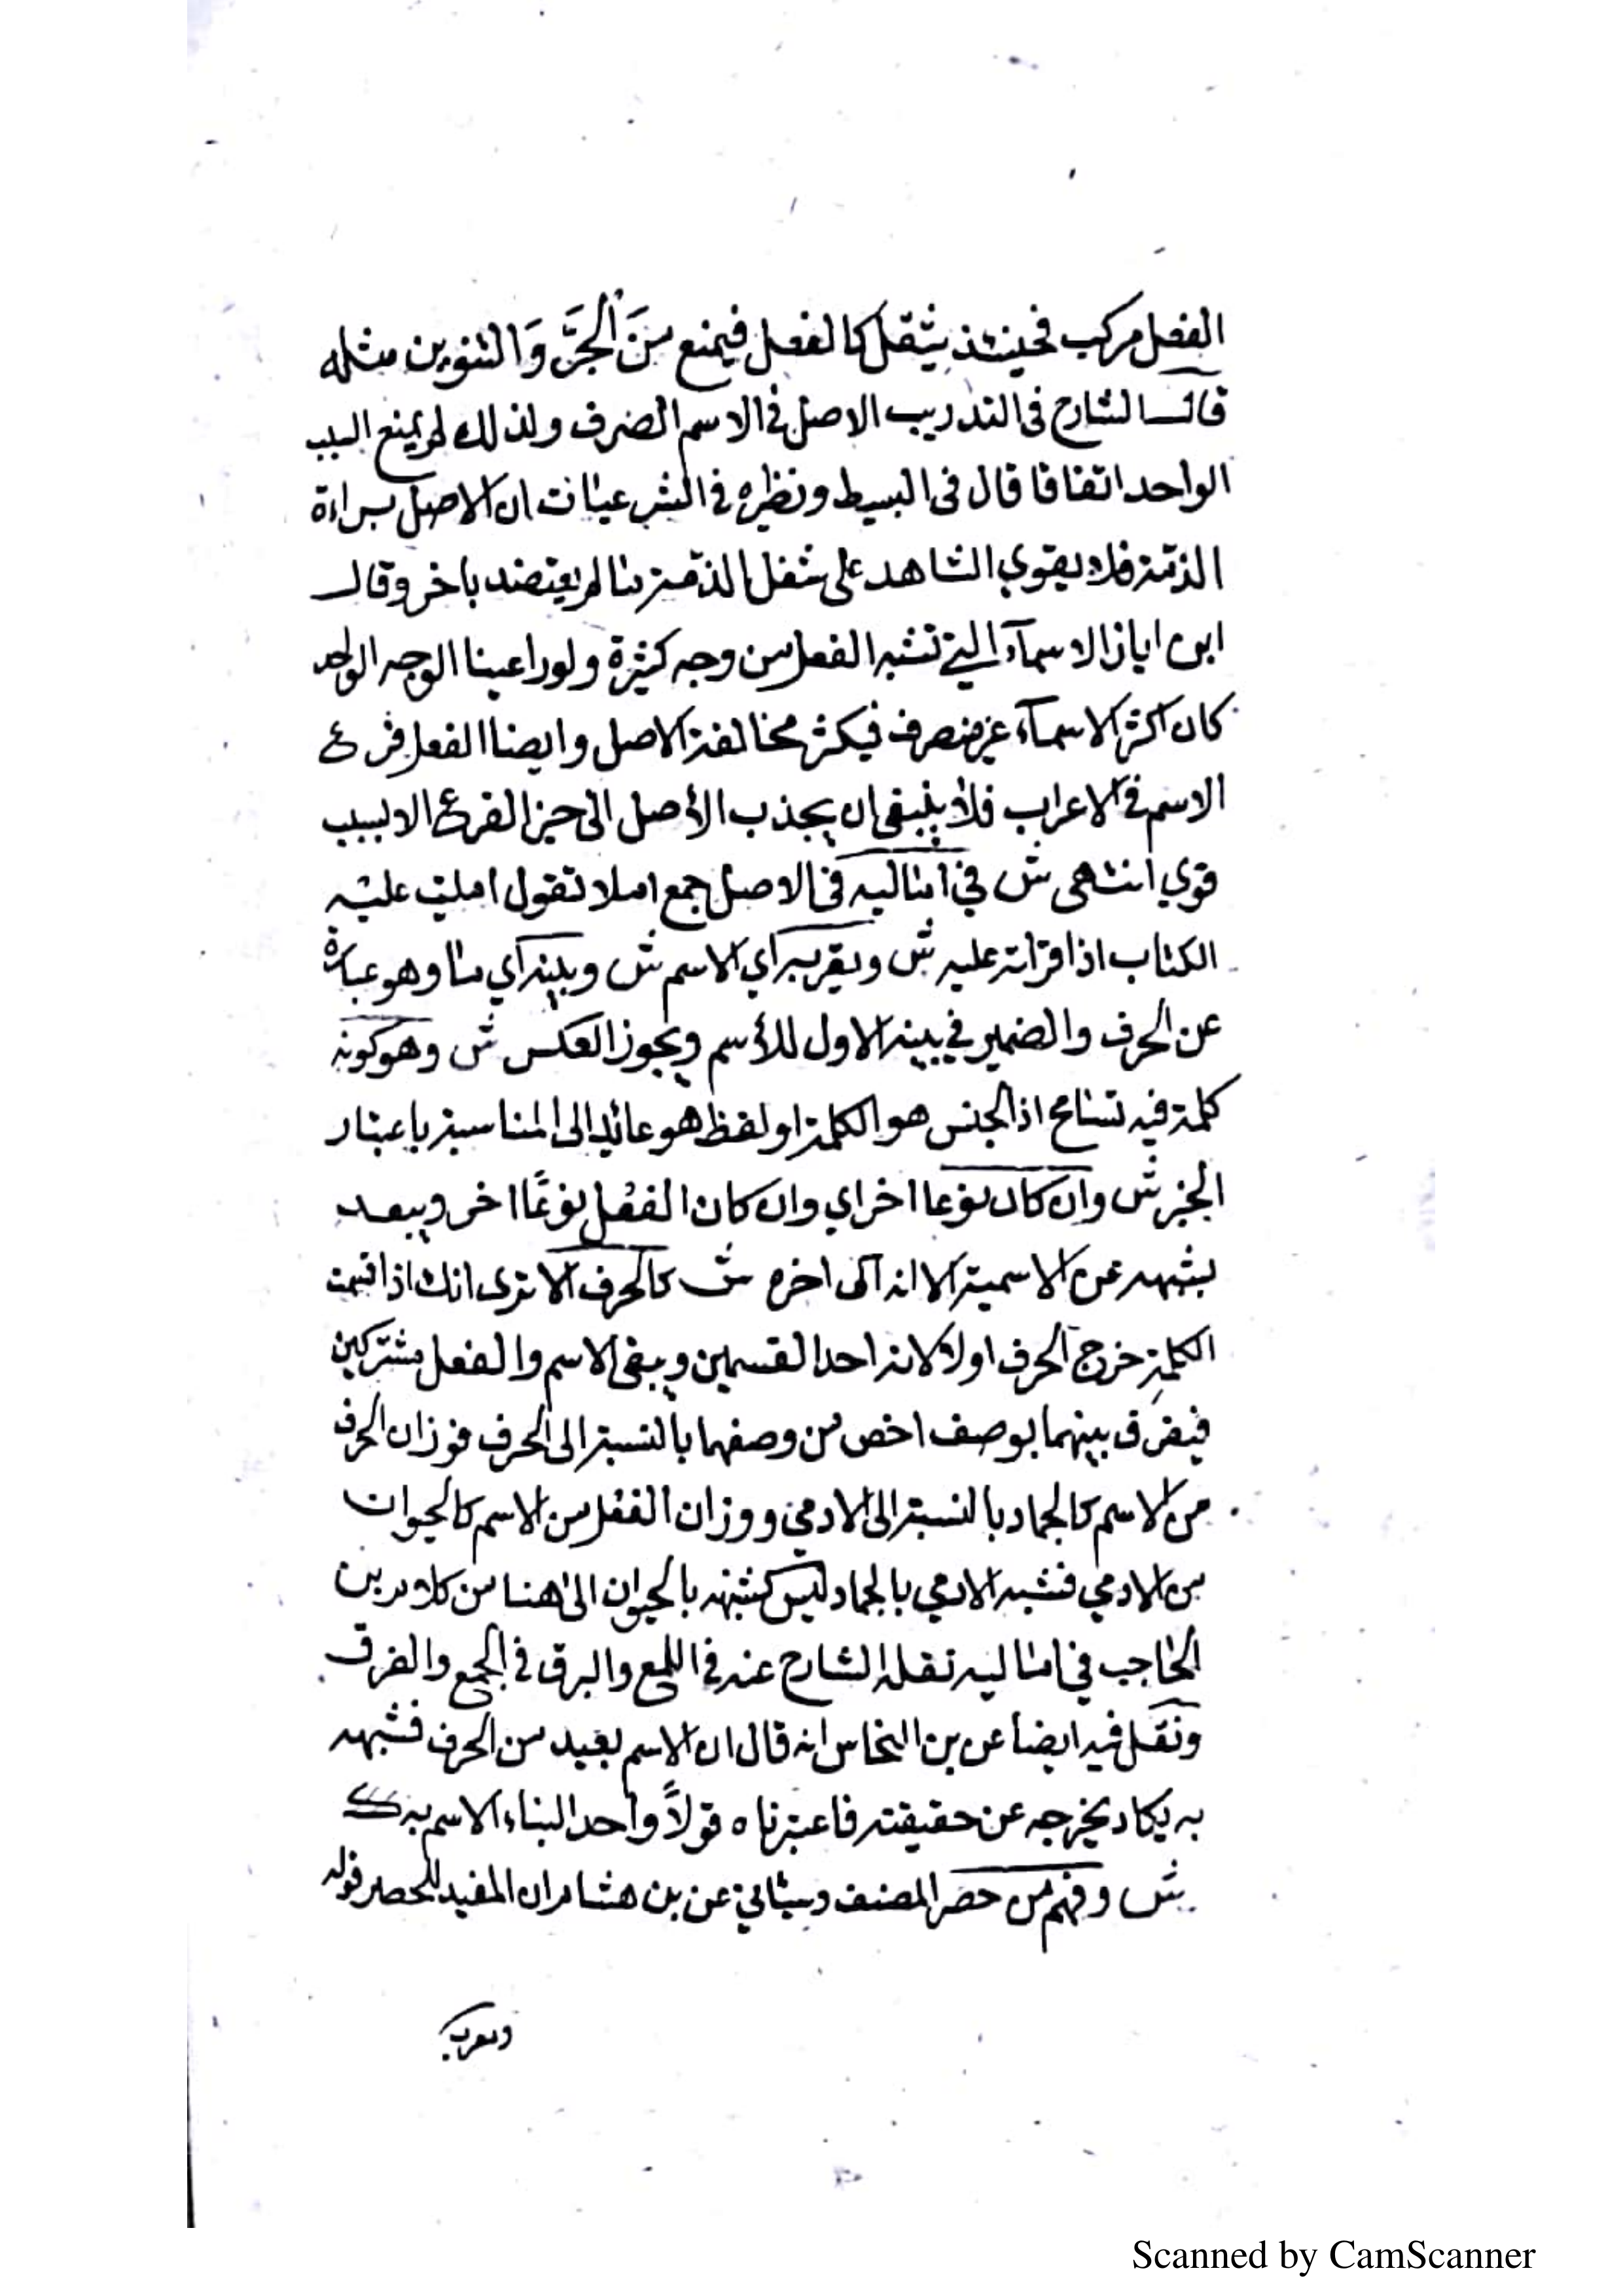 الفعل مركب فحينئذ يثقل كالفعل فيمنع منَ الجرَّ وَالتنوين مثله
قال الشارح في التدريب الاصل في الاسم الصرف ولذلك لم يمنع السبب
الواحد اتفاقا قال في البسيط ونظيره في الشرعيات ان الاصل براءة
الذمة فلا يقوي الشاهد على شغل الذمة ما لم يعتضد باخر وقال
ابن اياز الاسمآء التي تشبه الفعل من وجه كثيرة ولو راعينا الوجه الواحد
كان اكثر الاسمآء غير منصرف فيكثر مخالفة الاصل وايضا الفعل فرع
الاسم في الاعراب فلا ينبغي ان يجذب الأصل الى حيز الفرع الا لسبب
قوي انتهى ش في اماليه في الاصل جمع املا تقول امليت عليه
الكتاب اذا قراته عليه ش ويقربه اي الاسم ش وبينه اي ما وهو عبارة
عن الحرف والضمير في بينه الاول للأسم ويجوز العكس ش وهو كونه
كلمة فيه تسامح اذ الجنس هو الكلمة او لفظ هو عائد الى المناسبة باعتبار
الخبر ش وان كان نوعا اخر اي وان كان الفعل نوعًا اخر ويبعد
بشبهه عن الاسمية الا انه آلى اخره ش كالحرف الا ترى انك اذا قسمت
الكلمة خرج الحرف اولا لانه احد القسمين ويبقى الاسم والفعل مشتركين
فيفرق بينهما بوصف اخص من وصفهما بالنسبة الى الحرف فوزان الحرف
من الاسم كالجماد بالنسبة الى الادمي ووزان الفعل من الاسم كالحيوان
من الادمي فشبه الادمي بالجماد ليس كشبهه بالحيوان الى هنا من كلام بن
الحاجب في اماليه نقله الشارح عنه في اللمع والبرق في الجمع والفرق
ونقل فيه ايضا عن بن النحاس انه قال ان الاسم بعيد من الحرف فشبهه
به يكاد يخرجه عن حقيقته فاعتبرناه قولاً واحدا لبناء الاسم به
ش وفهم من حصر المصنف وسيأتي عن بن هشام ان المفيد للحصر قوله
ومعرب
Scanned by CamScanner